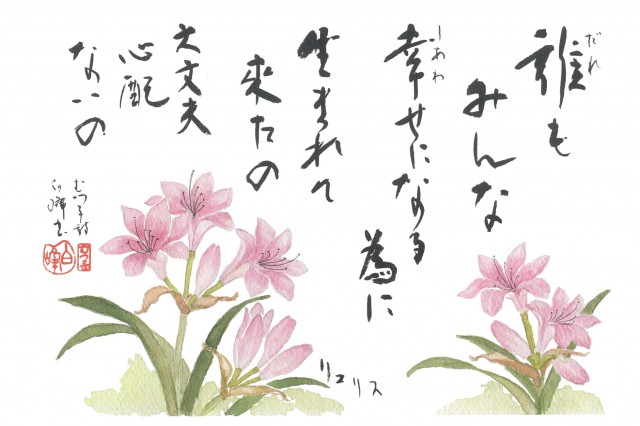 だれ
誰も
みんな
しあわ
幸せになる
為に
生まれて
来たの
大丈夫
心配
ないの
リコリス